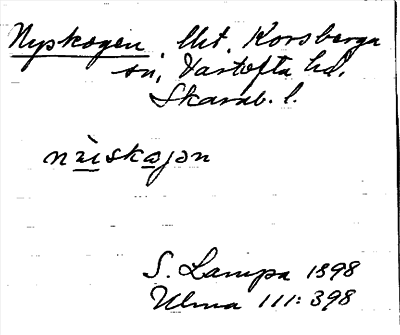 Nyskogen, Utt. Korsberga
sn, Vartofta hd.
Skarab. l.
näiskajən
S. Lampa 1898
Ulma 111:398